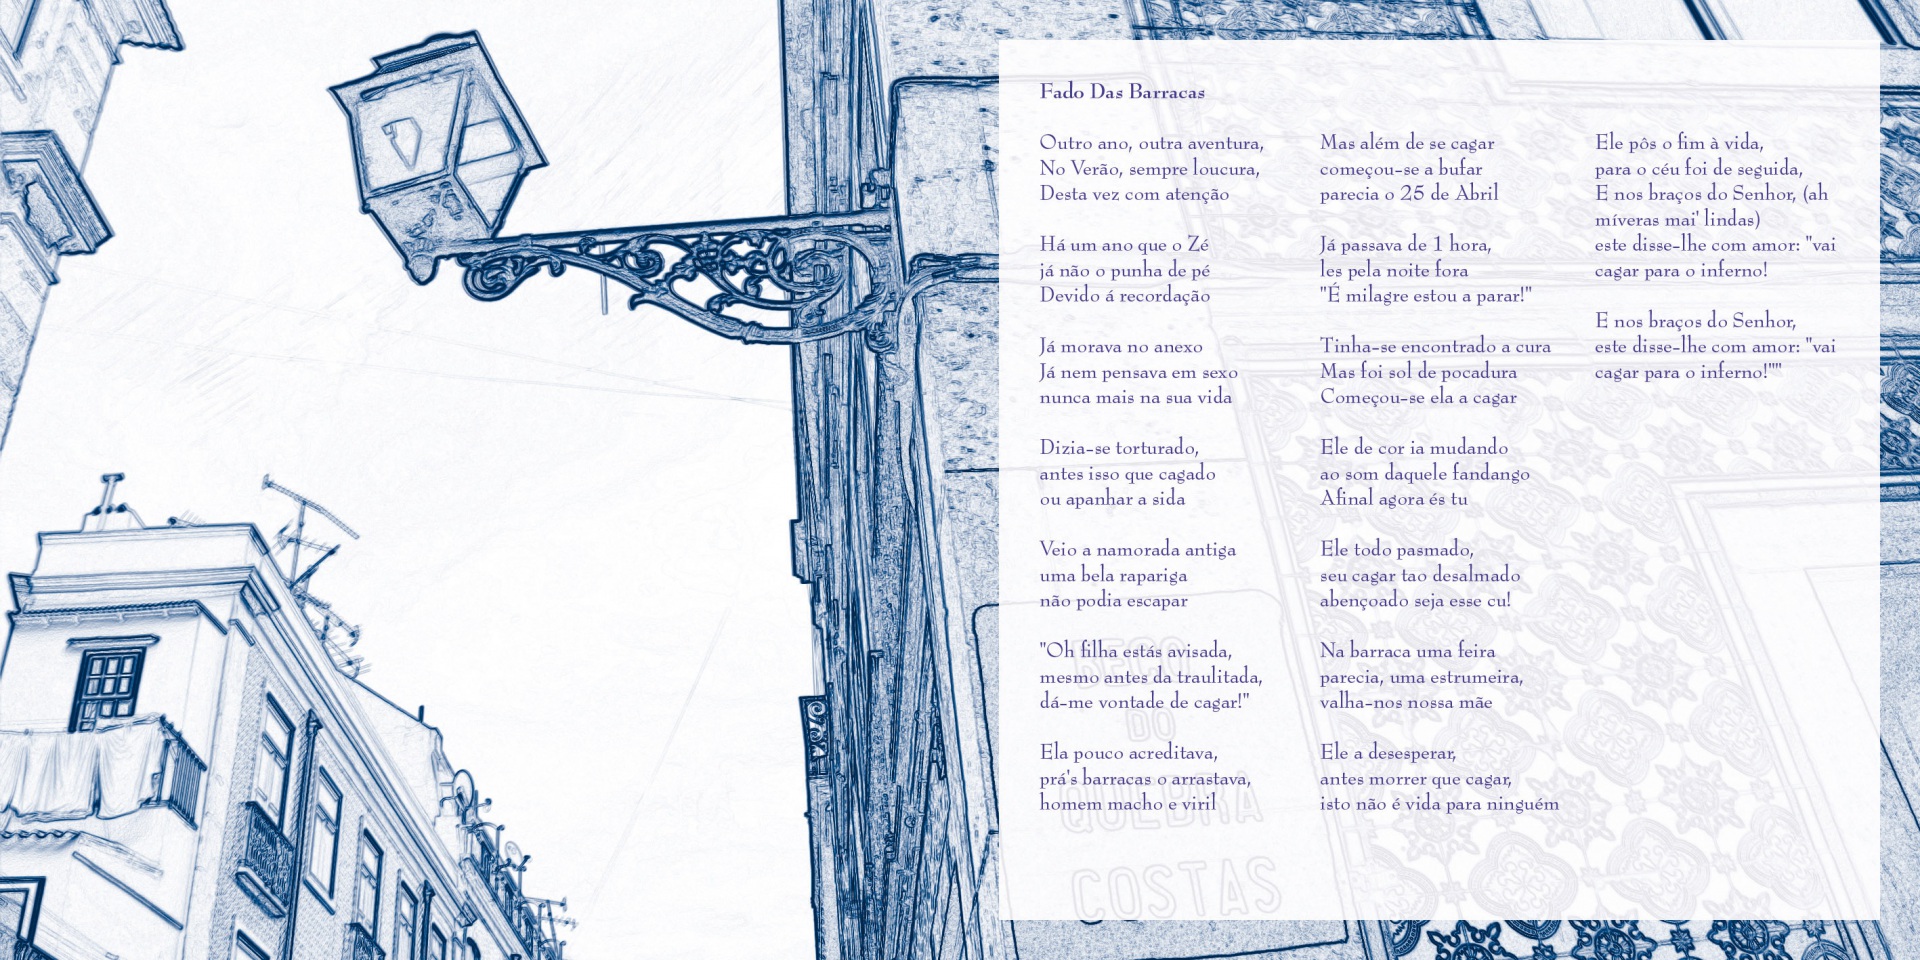 Fado Das Barracas
Outro ano, outra aventura,
No Verão, sempre loucura,
Desta vez com atenção
Há um ano que o Zé
já não o punha de pé
Devido á recordação
Já morava no anexo
Já nem pensava em sexo
nunca mais na sua vida
Dizia-se torturado,
antes isso que cagado
ou apanhar a sida
Veio a namorada antiga
uma bela rapariga
não podia escapar
"Oh filha estás avisada,
mesmo antes da traulitada,
dá-me vontade de cagar!"
Ela pouco acreditava,
prá's barracas o arrastava,
homem macho e viril
Mas além de se cagar
começou-se a bufar
parecia o 25 de Abril
Já passava de 1 hora,
les pela noite fora
"É milagre estou a parar!"
Tinha-se encontrado a cura
Mas foi sol de pocadura
Começou-se ela a cagar
Ele de cor ia mudando
ao som daquele fandango
Afinal agora és tu
Ele todo pasmado,
seu cagar tao desalmado
abençoado seja esse cu!
Na barraca uma feira
parecia, uma estrumeira,
valha-nos nossa mãe
Ele a desesperar,
antes morrer que cagar,
isto não é vida para ninguém
Ele pôs o fim à vida,
para o céu foi de seguida,
E nos braços do Senhor, (ah
míveras mai' lindas)
este disse-lhe com amor: "vai
cagar para o inferno!
E nos braços do Senhor,
este disse-lhe com amor: "vai
cagar para o inferno!""
BECO
DO
QUEBRA
COSTAS